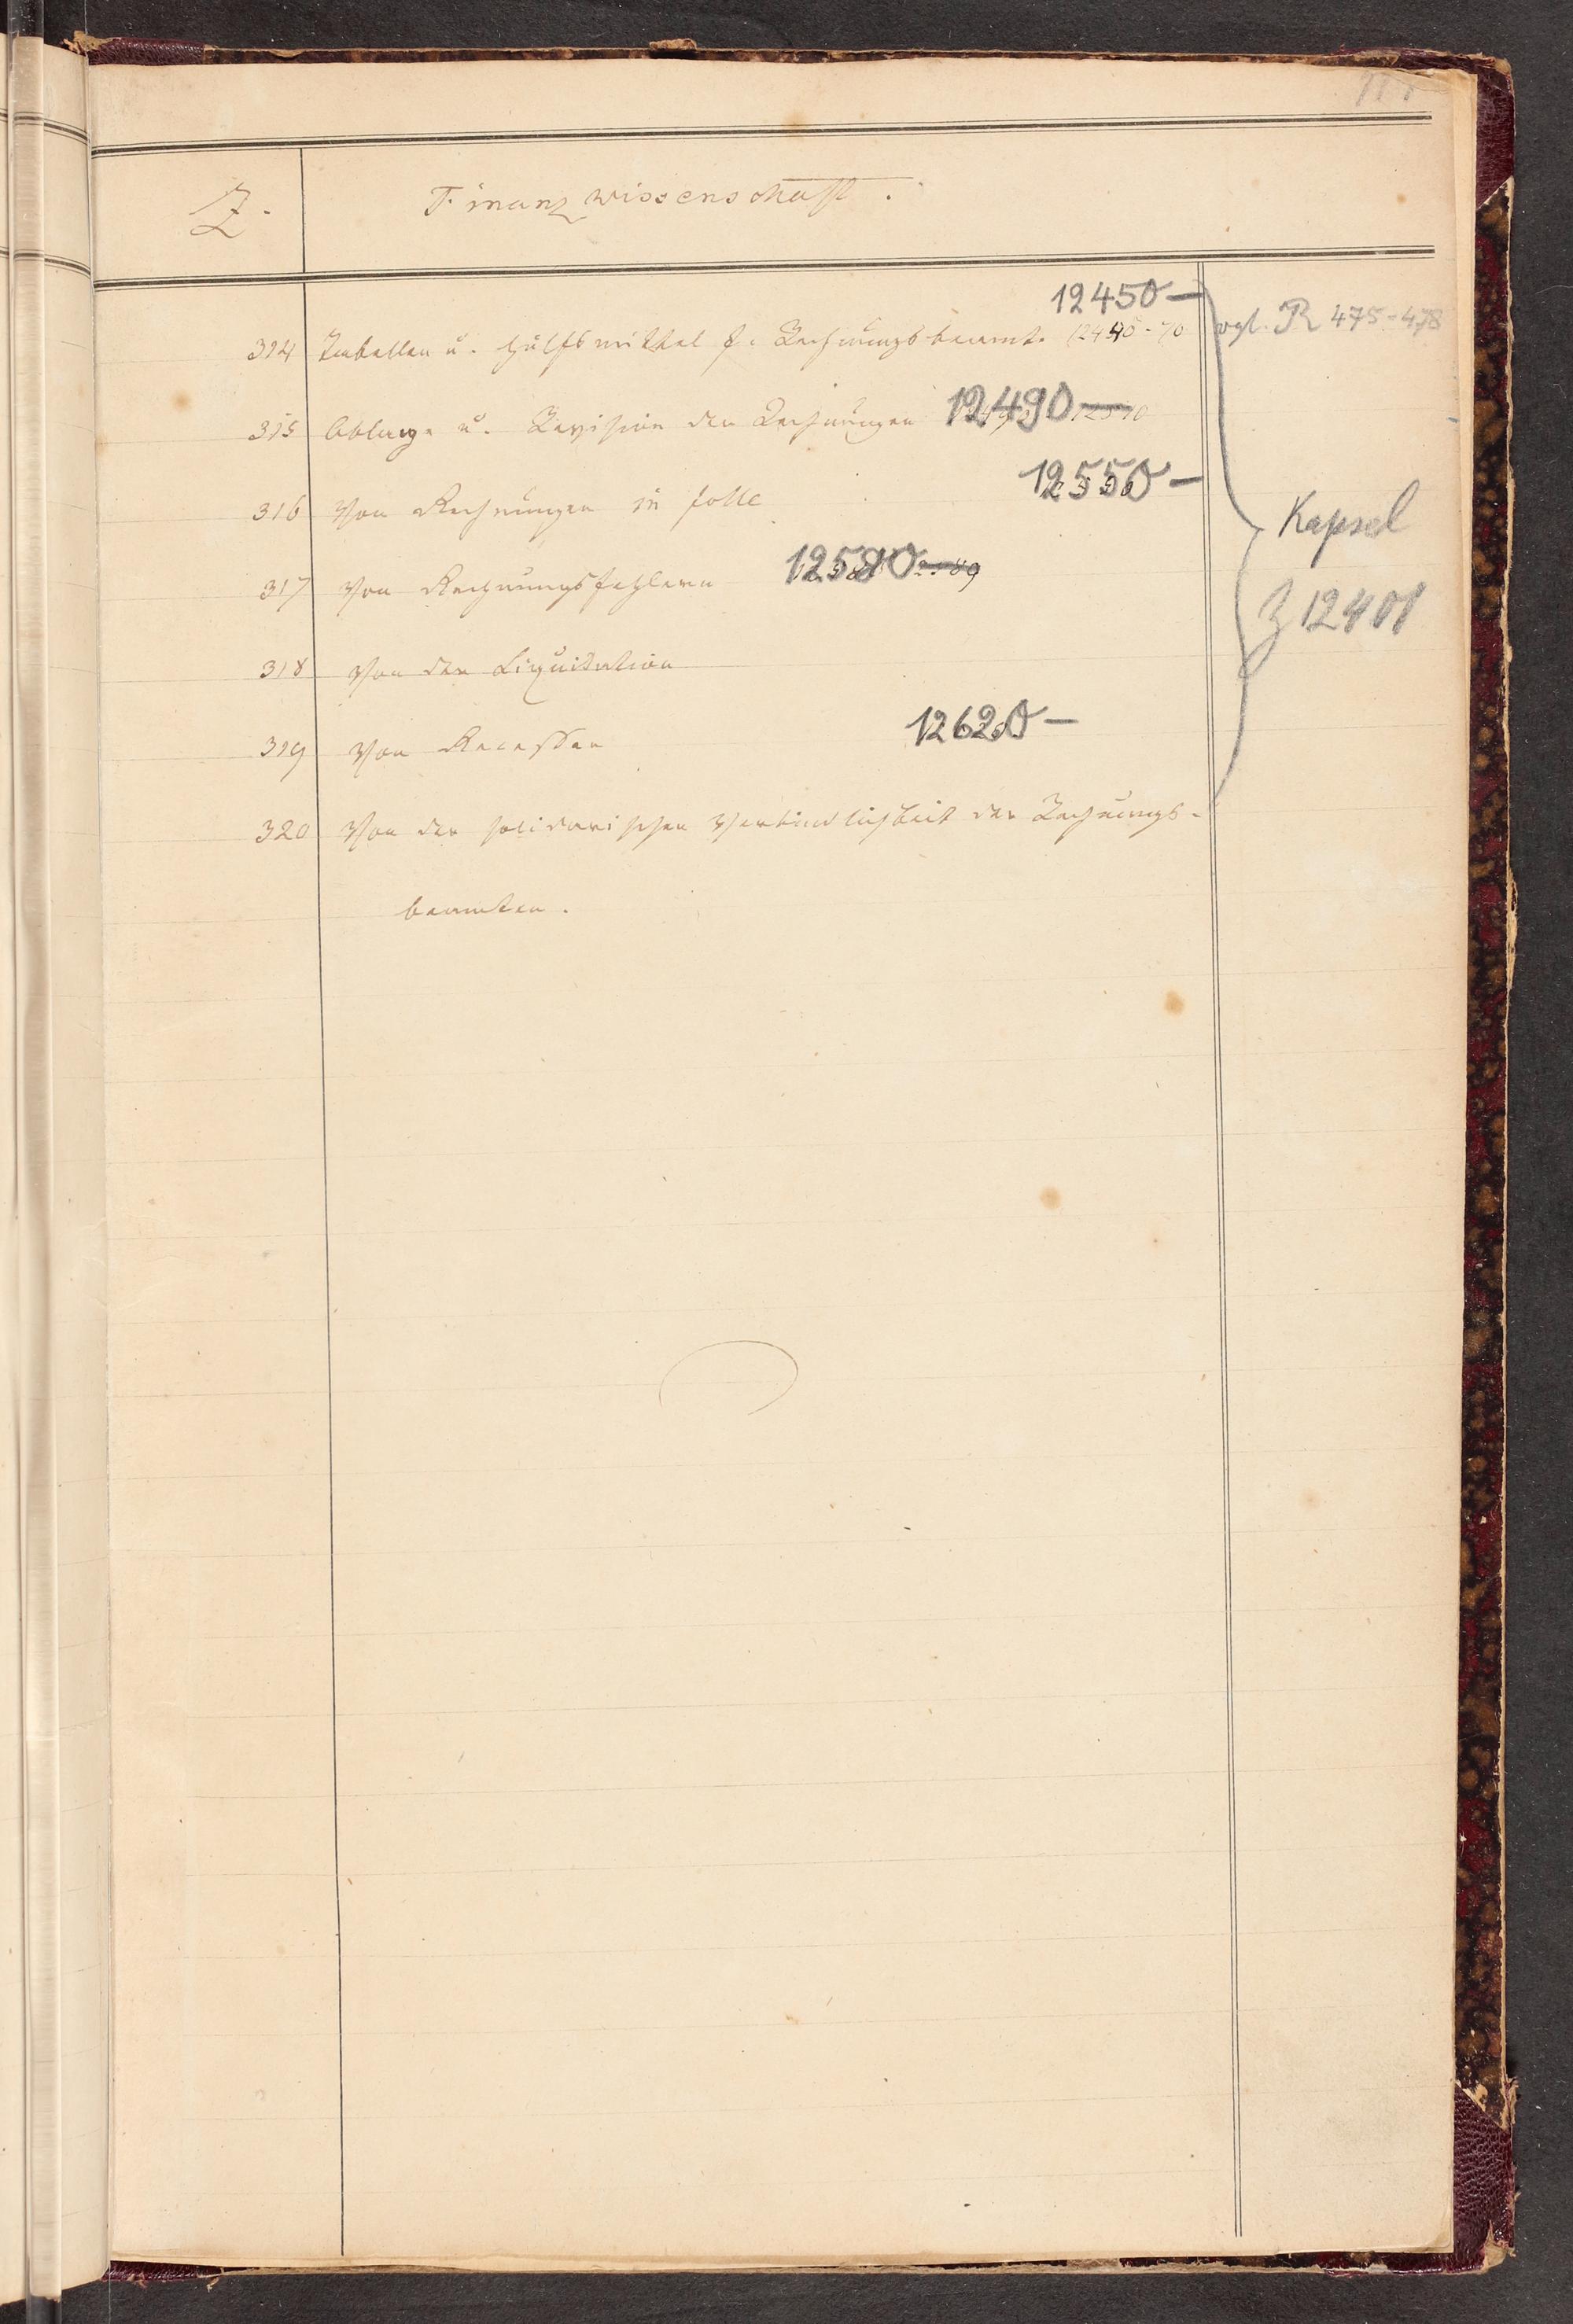 Z. Finanzwissenschaft.
12450 —
314 Tabellen u. Hülfsmittel f. Rechnungsbeamt. vgl. R 475-478
315 Ablage u. Revision der Rechnungen 12490 —
12550 —
316 Von Rechnungen in folle
317 Von Rechnungsfehlern 12580
318 Von der Liquidation
319 Von Recessen 12620 —
320 Von der solidarischen Verbindlichkeit der Rechnungs-
beamten.
Kapsel
Z 12401